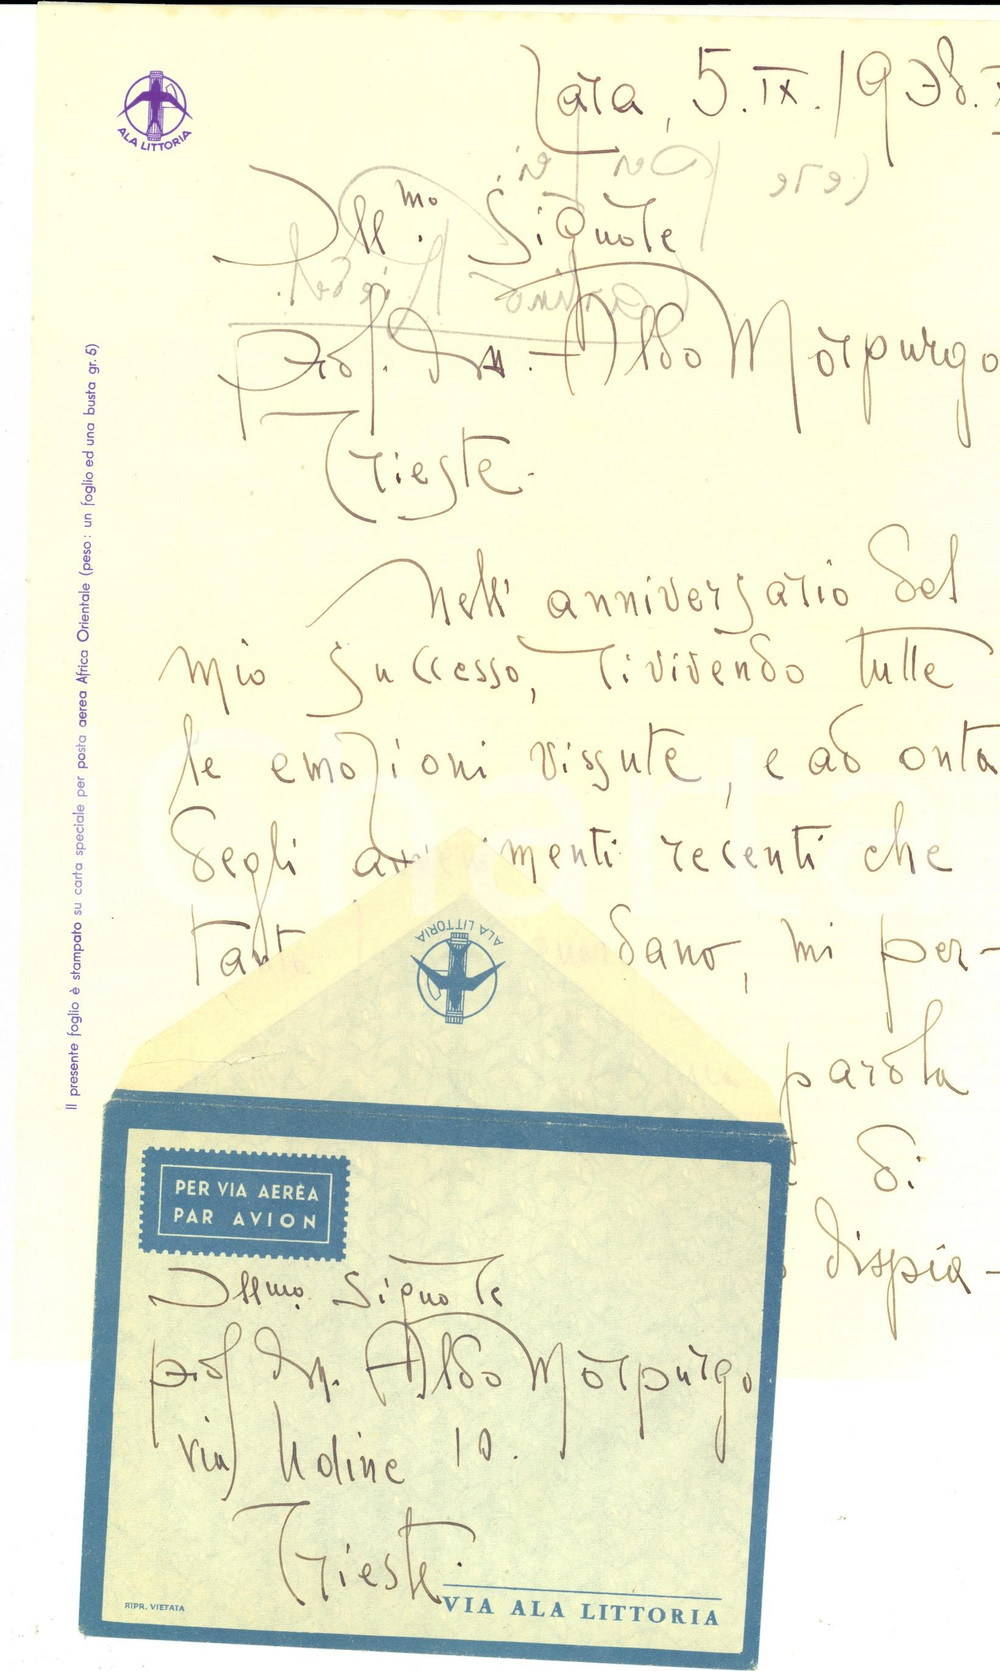 ALA LITTORIA
Zara, 5.IX.1938.
Ill.mo Signore
prof. dr. Aldo Morpurgo
Trieste.
Nell' anniversario del
mio successo, rivivendo tutte
le emozioni vissute, e ad onta
degli avvenimenti recenti che
tanto dano, mi per-
parola
di
dispia-
Il presente foglio è stampato su carta speciale per posta aerea Africa Orientale (peso: un foglio ed una busta gr. 5)
ALA LITTORIA
PER VIA AEREA
PAR AVION
Illmo. Signore
prof. dr. Aldo Morpurgo
via Udine 10.
Trieste.
RIPR. VIETATA
VIA ALA LITTORIA